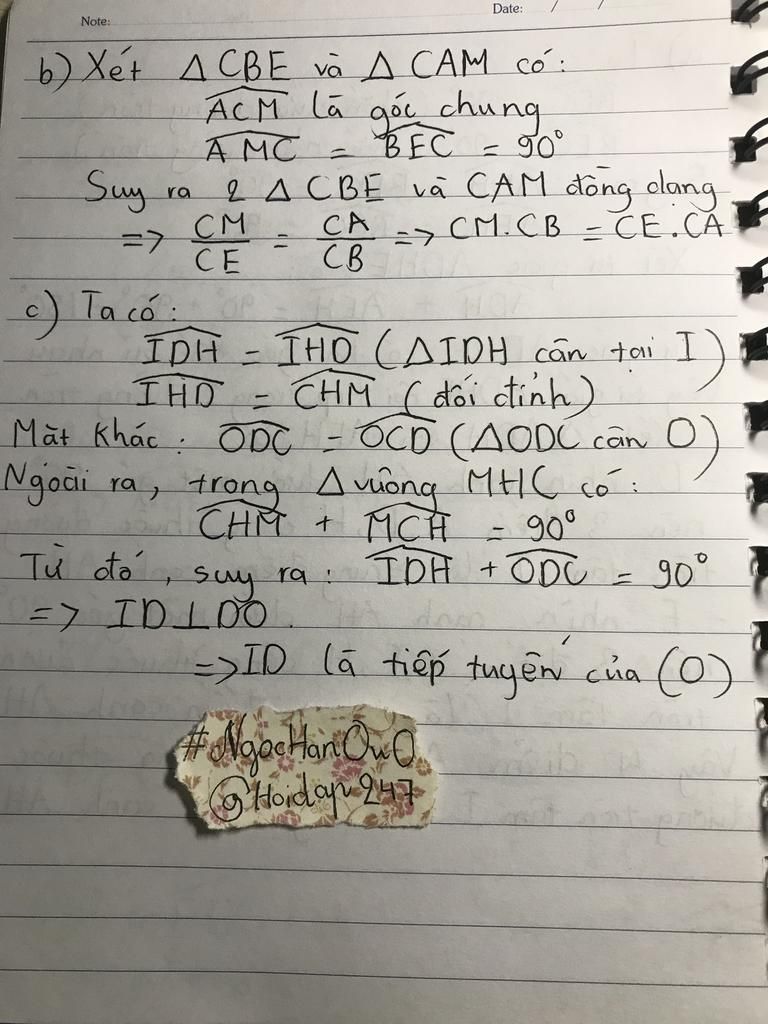 Note:
Date: / /
b) Xét Δ CBE và Δ CAM có:
ACM là góc chung
AMC = BEC = 90°
Suy ra 2 Δ CBE và CAM đồng dạng
=> CM/CE = CA/CB => CM.CB = CE.CA
c) Ta có:
IDH = IHD (ΔIDH cân tại I)
IHD = CHM (đối đỉnh)
Mặt khác: ODC = OCD (ΔODC cân O)
Ngoài ra, trong Δ vuông MHC có:
CHM + MCH = 90°
Từ đó, suy ra: IDH + ODC = 90°
=> ID⊥DO.
=> ID là tiếp tuyến của (O)
#NgocHanOwO
@Hoidap247